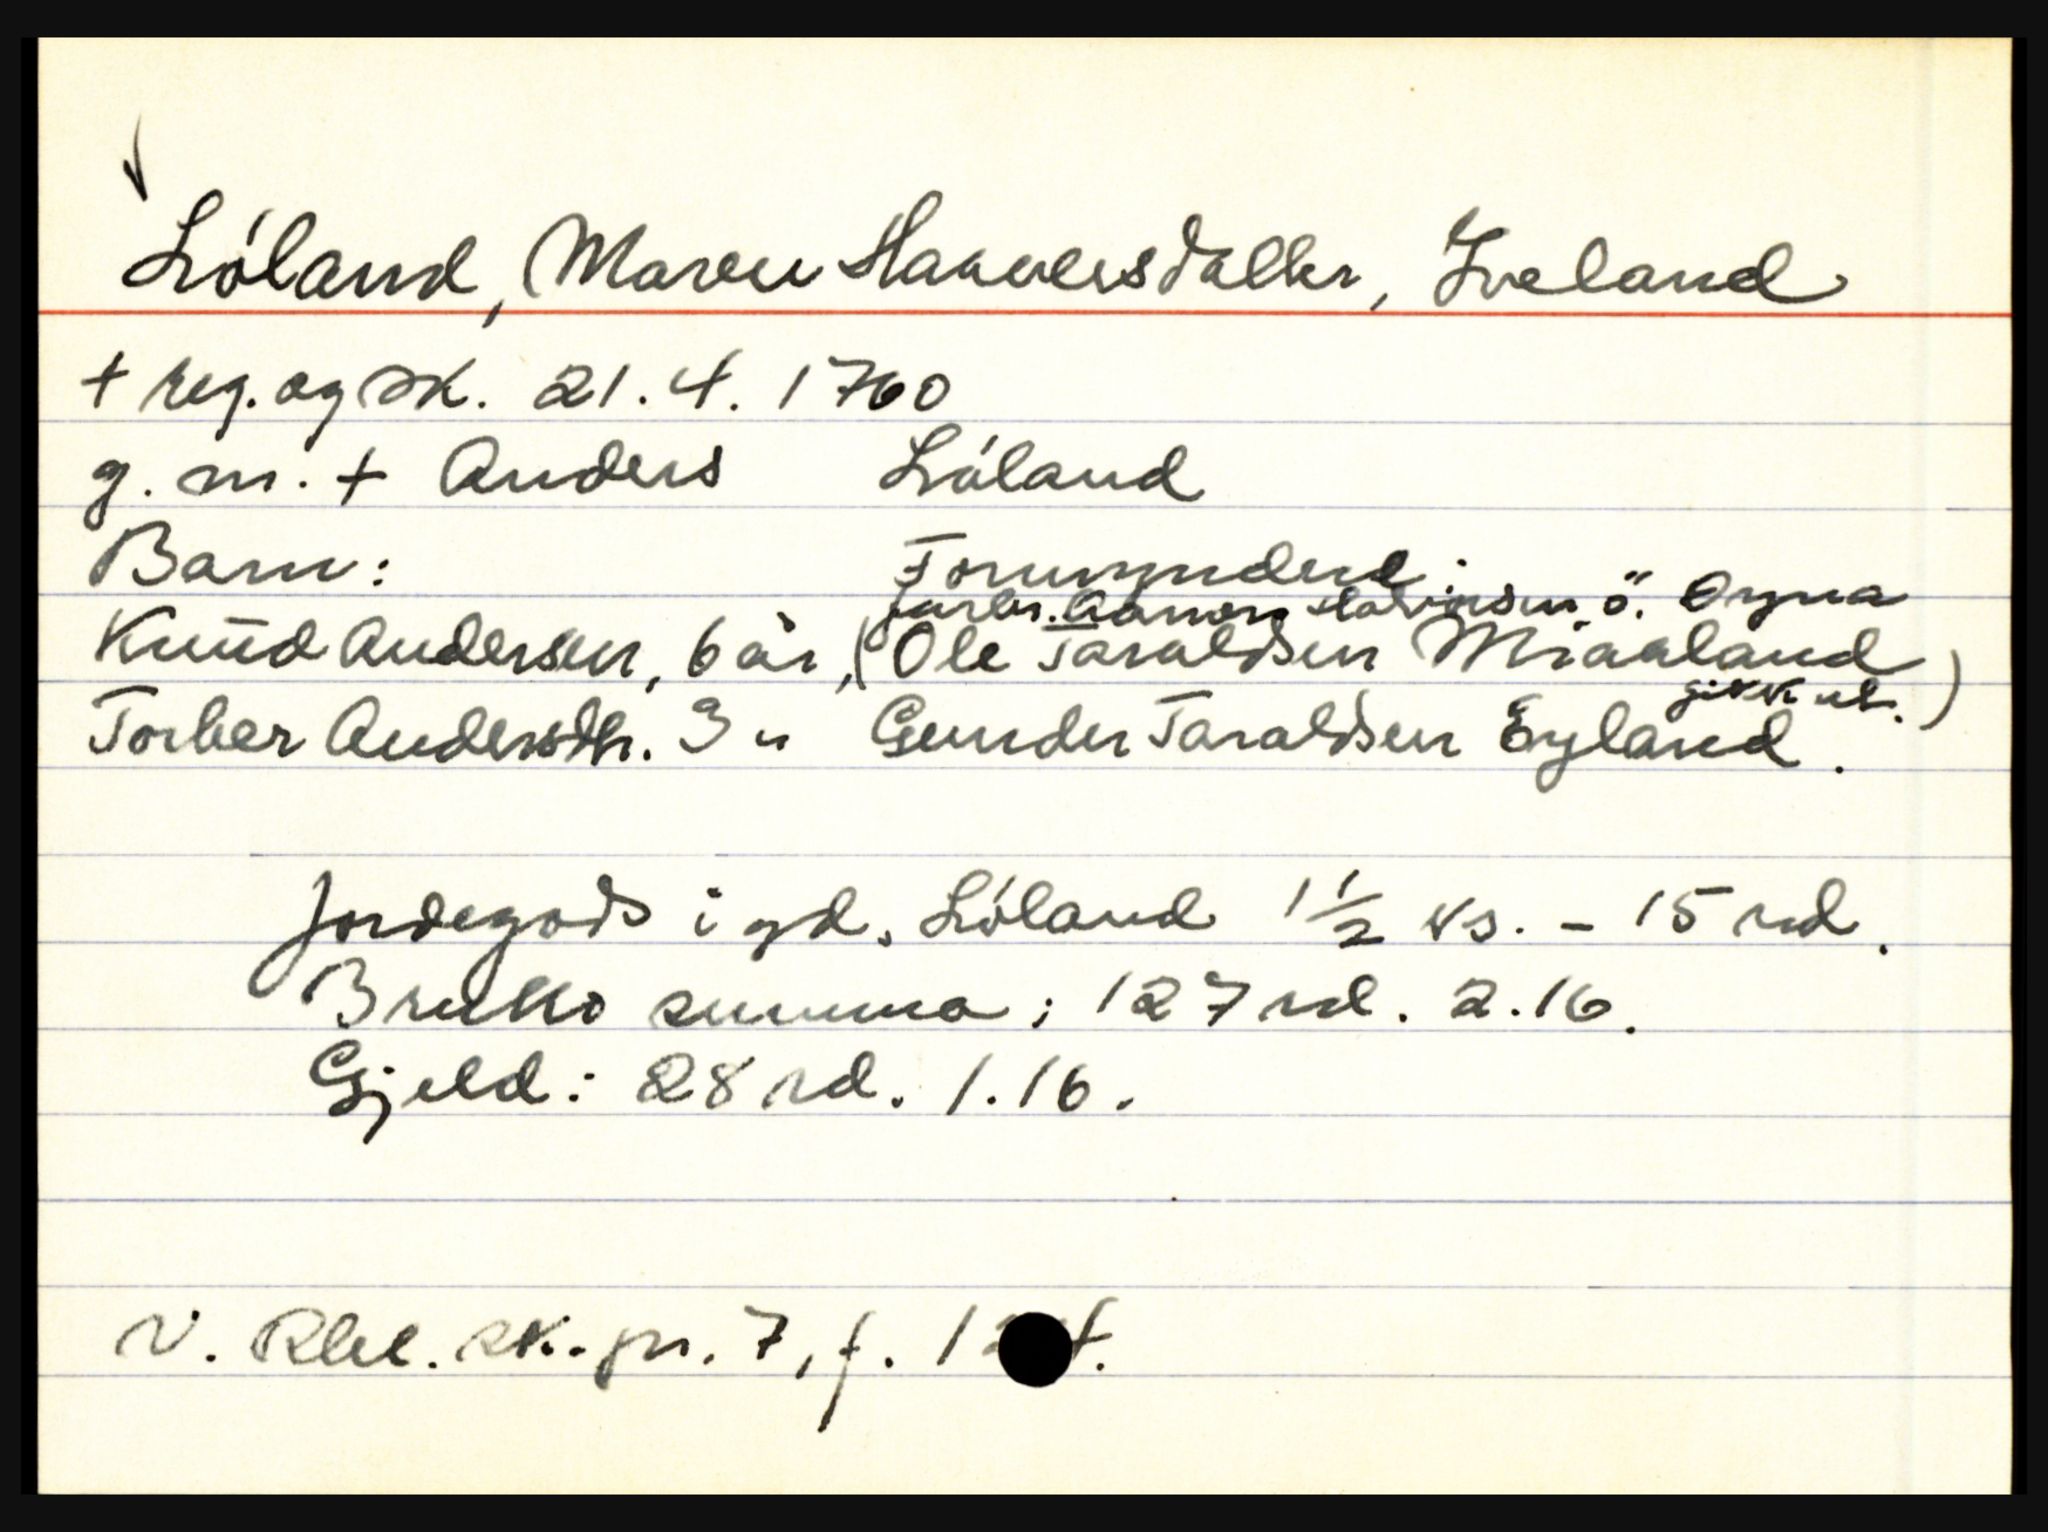 Lóland, Maren Haaversdatter, Iveland
+ reg. og sk. 21.4. 1760
g. m. + Anders Lóland
Barn: Formyndere:
farbr. Aanon ö. Øyna
Knud Andersen, 6 år, (Ole Taraldsen Miaaland
gikk ut.)
Torber Andersdtr. 3 " Gunder Taraldsen Eyland.
Jordegods i gd. Lóland 1 1/2 ks. - 15 rd.
Brutto summa: 127 rd. 2.16.
Gjeld: 28 rd. 1.16.
V. Rbl. sk.pr. 7, f.